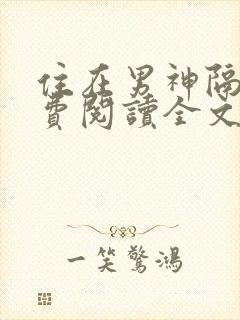 住在男神隔
費閱讀全文
一笑驚鴻